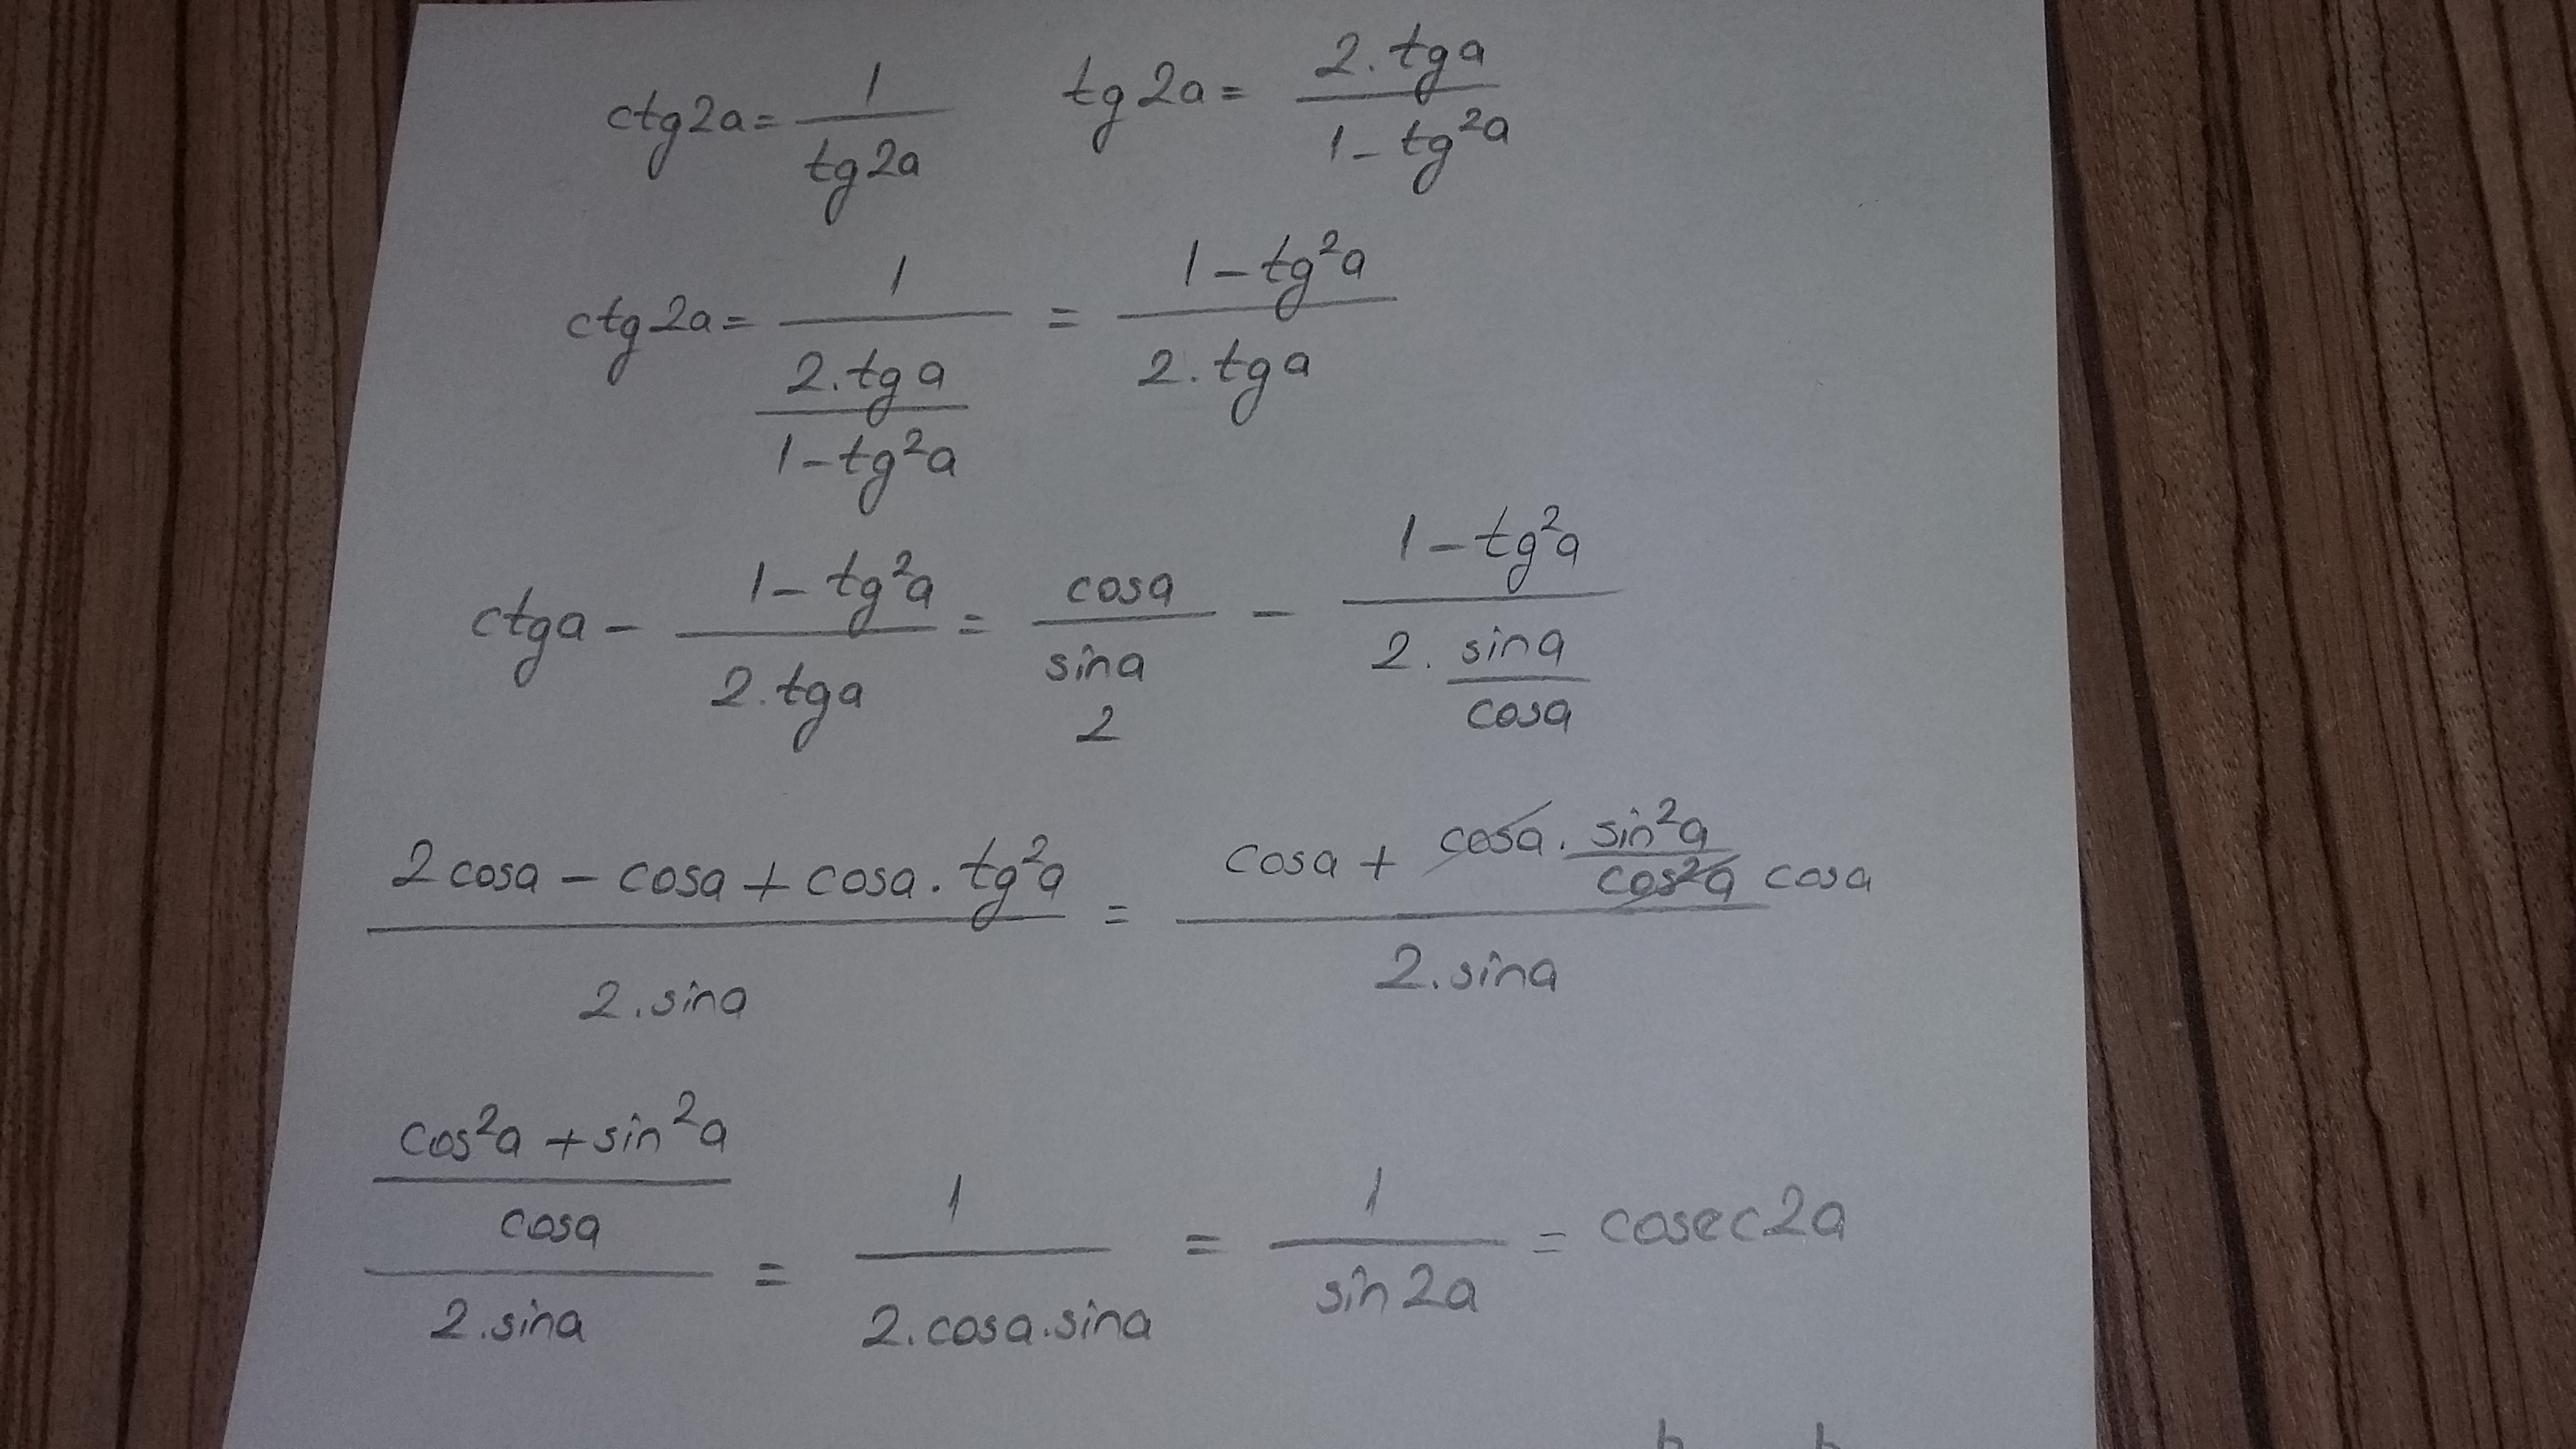 ctg2a = 1 / tg2a    tg2a = 2.tga / 1-tg²a
ctg2a = 1 / (2.tga / 1-tg²a) = 1-tg²a / 2.tga
ctga - 1-tg²a / 2.tga = cosa / sina - 1-tg²a / 2.sina/cosa
2
2cosa - cosa + cosa.tg²a / 2.sina = cosa + cosa.sin²a/cos²a cosa / 2.sina
cos²a + sin²a / cosa / 2.sina = 1 / 2.cosa.sina = 1 / sin2a = cosec2a